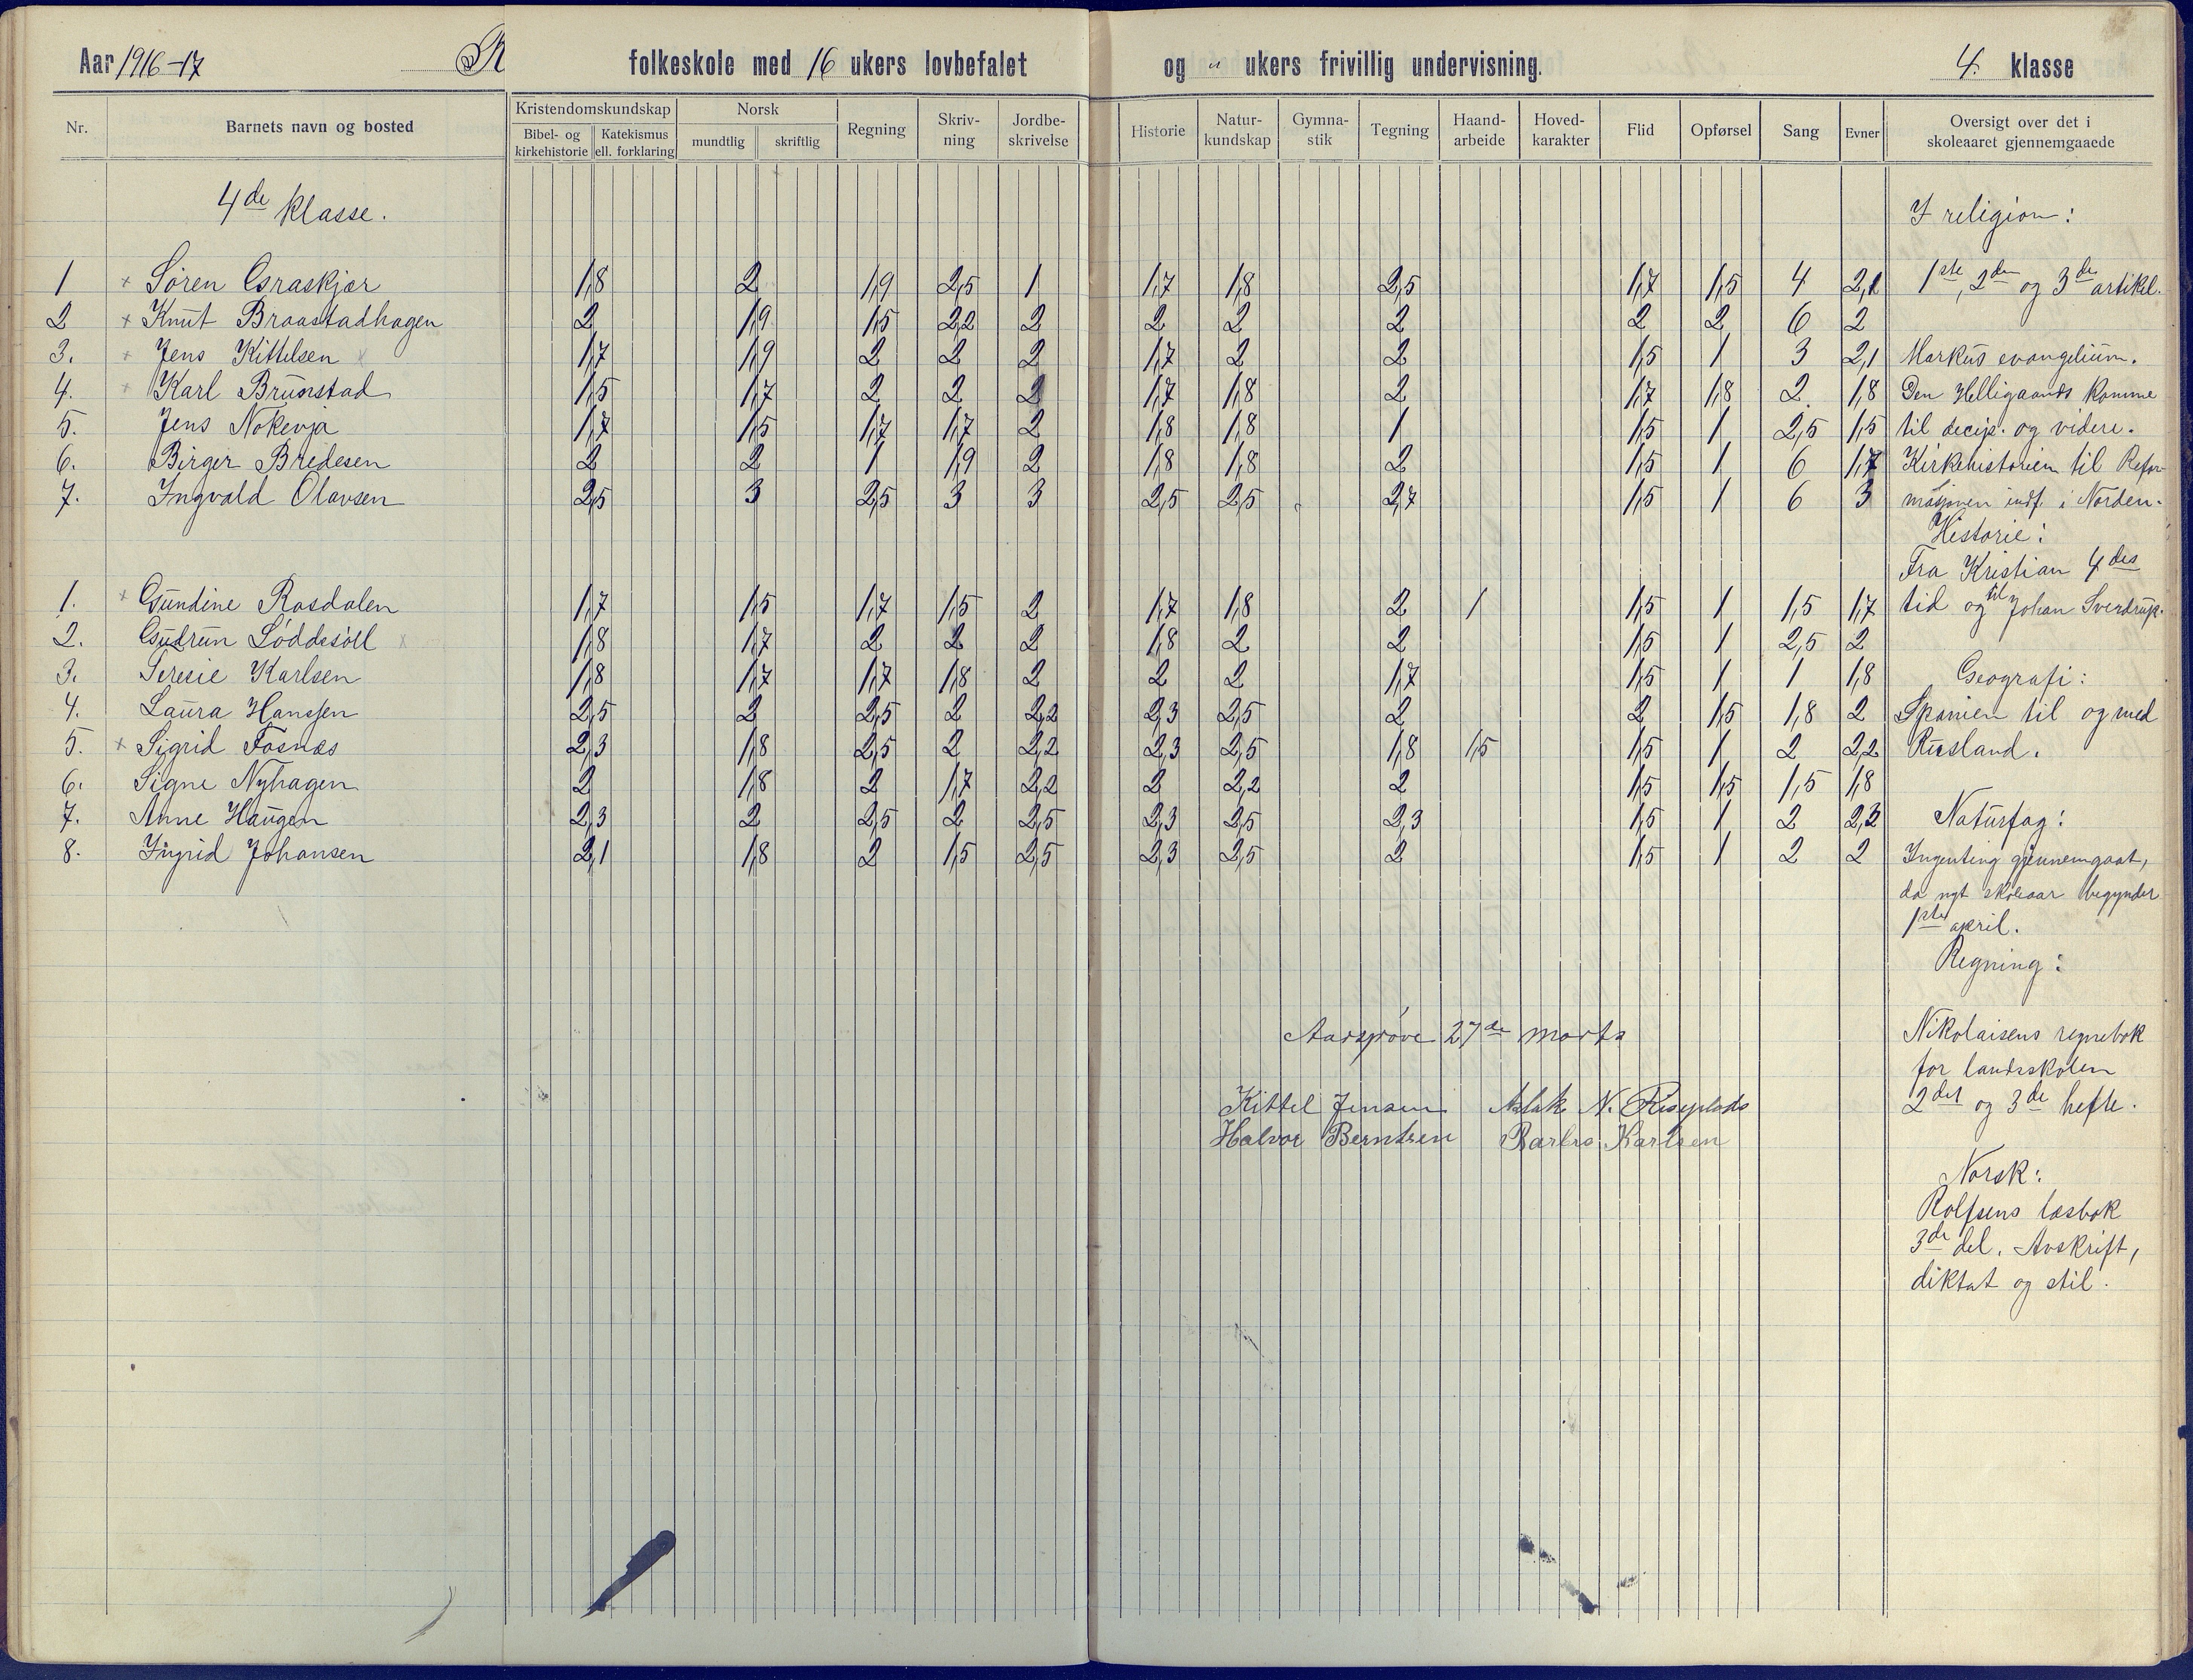 Aar 1916-17 R folkeskole med 16 ukers lovbefalet og " ukers frivillig undervisning. 4. klasse
Nr. Barnets navn og bosted Kristendomskundskap Bibel- og kirkehistorie Katekismus ell. forklaring Norsk mundtlig skriftlig Regning Skriv-ning Jordbe-skrivelse Historie Natur-kundskap Gymna-stik Tegning Haand-arbeide Hoved-karakter Flid Opførsel Sang Evner Oversigt over det i skoleaaret gjennemgaaede
4de klasse. I religion:
1 + Søren Graskjær 1,8 2 1,9 2,5 1 1,7 1,8 2,5 1,7 1,5 4 2,1 1ste, 2den og 3de artikel.
2 + Knut Braastadhagen 2 1,9 1,5 2,2 2 2 2 2 2 2 6 2
3. + Jens Kittelsen x 1,7 1,9 2 2 2 1,7 2 2 1,5 1 3 2,1 Markus evangelium.
4. + Karl Brunstad 1,5 1,7 2 2 2 1,7 1,8 2 1,7 1,8 2. 1,8 Den Helligaands komme
5. Jens Nokevja 1,7 1,5 1,7 1,7 2 1,8 1,8 1 1,5 1 2,5 1,5 til decip. og videre.
6. Birger Bredesen 2 2 1 1,9 2 1,8 1,8 2 1,5 1 6 1,7 Kirkehistorien til Refor-
7. Ingvald Olavsen 2,5 3 2,5 3 3 2,5 2,5 2,7 1,5 1 6 3 masjonen indf. i Norden.
Historie:
Fra Kristian 4des
1. + Gundine Rosdalen 1,7 1,5 1,7 1,5 2 1,7 1,8 2 1 1,5 1 1,5 1,7 tid og til Johan Sverdrup.
2. Gudrun Løddesöll x 1,8 1,7 2 2 2 1,8 2 2 1,5 1 2,5 2
3. Seresie Karlsen 1,8 1,7 1,7 1,8 2 2 2 1,7 1,5 1 1 1,8 Geografi:
4. Laura Hanssen 2,5 2 2,5 2 2,2 2,3 2,5 2 2 1,5 1,8 2 Spanien til og med
5. + Sigrid Fosnæs 2,3 1,8 2,5 2 2,2 2,3 2,5 1,8 1,5 1,5 1 2 2,2 Rusland.
6. Signe Nyhagen 2 1,8 2 1,7 2,2 2 2,2 2 1,5 1,5 1,5 1,8
7. Anne Haugen 2,3 2 2,5 2 2,5 2,3 2,5 2,3 1,5 1 2 2,2 Naturfag:
8. Ingrid Johansen 2,1 1,8 2 1,5 2,5 2,3 2,5 2 1,5 1 2 2 Ingenting gjennemgaat,
da nyt skoleaar begynder
1ste april.
Regning:
Aarsprøve 27de marts Nikolaisens regnebok
for landsskolen
Kittel Jensen Aslak N. 2det og 3de hefte.
Halvor Berntsen Karlsen
Norsk:
Rolfsens læsbok
3de del. Avskrift,
diktat og stil.